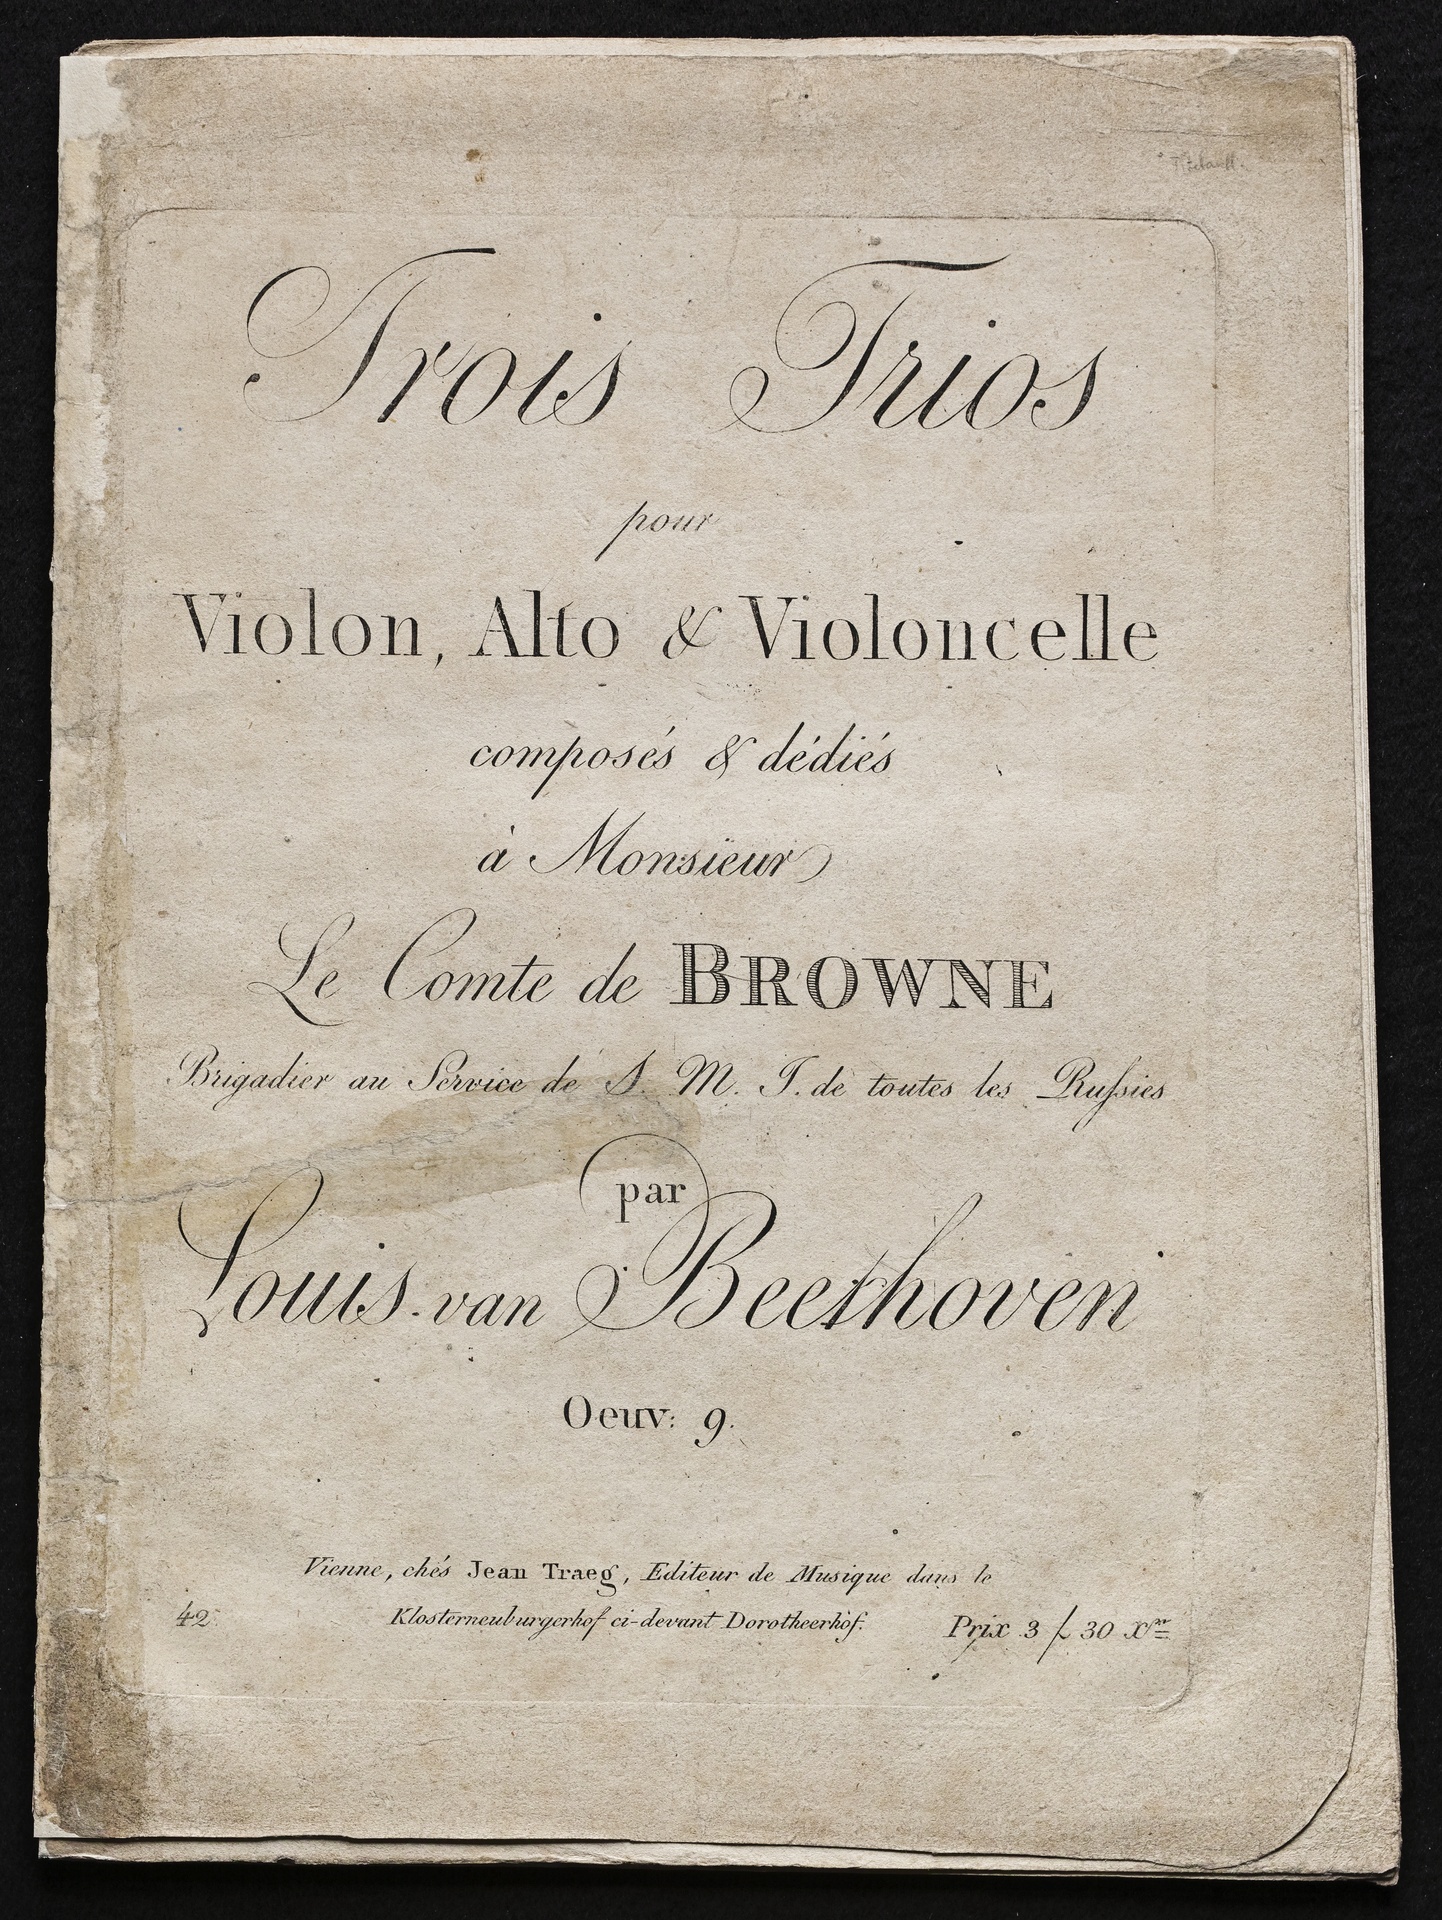 Trois Trios
pour
Violon, Alto & Violoncelle
composés & dédiés
à Monsieur
Le Comte de BROWNE
Brigadier au Service de S. M. I. de toutes les Ruſsies
par
Louis van Beethoven
Oeuv: 9.
Vienne, chés Jean Traeg, Editeur de Musique dans le
Klosterneuburgerhof ci-devant Dorotheerhof.
42.
Prix 3 f 30 Xr